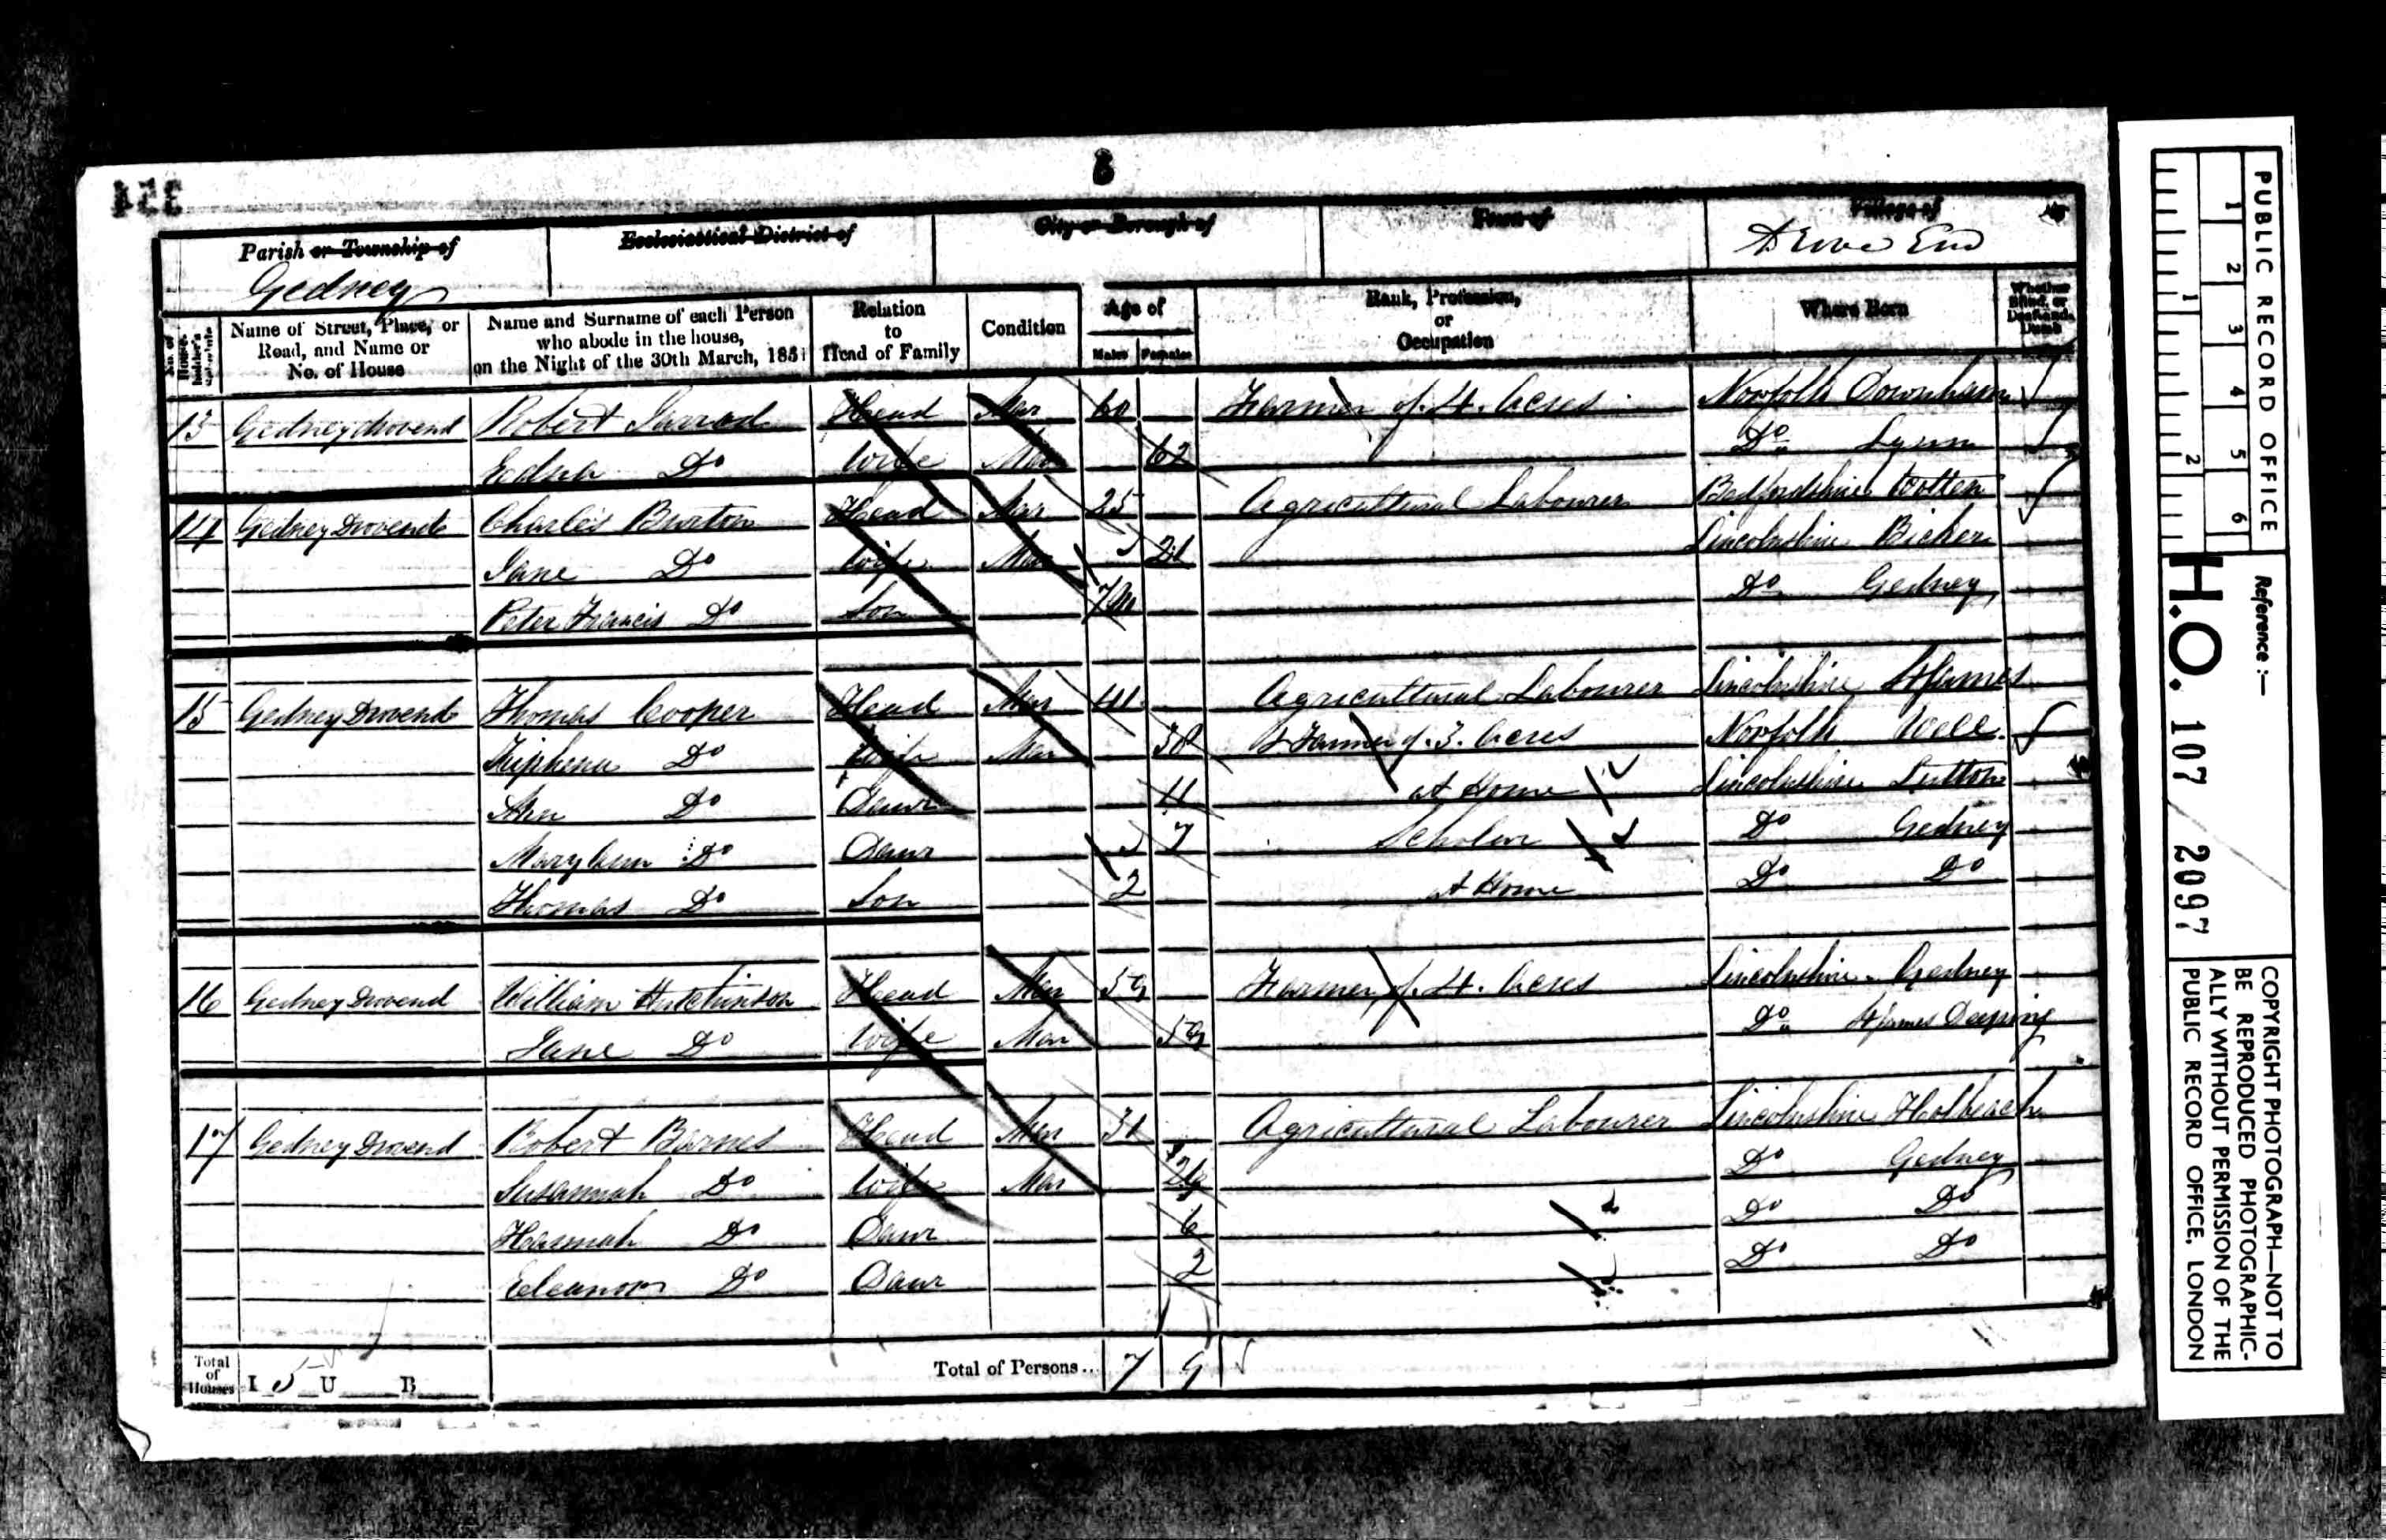 8
Parish or Township of
Gedney
Ecclesiastical District of
City or Borough of
Town of
Village of
Drove End
No. of House-holder's Schedule
Name of Street, Place, or Road, and Name or No. of House
Name and Surname of each Person who abode in the house, on the Night of the 30th March, 1851
Relation to Head of Family
Condition
Age of
Males Females
Rank, Profession, or Occupation
Where Born
Whether Blind, or Deaf-and-Dumb
13 Gedney Drovend Robert Jarrad Head Mar 60 Farmer of 4 Acres Norfolk Downham
Do Wife Mar 62 Do Lynn
14 Gedney Drovend Charles Burton Head Mar 25 Agricultural Labourer Bedfordshire Wotten
Jane Do Wife Mar 21 Lincolnshire Bicker
Peter Francis Do Son 7m Do Gedney
15 Gedney Drovend Thomas Cooper Head Mar 41 Agricultural Labourer Lincolnshire St James
Triphena Do Wife Mar 38 & Farmer of 3 Acres Norfolk Well
Ann Do Daur 11 At Home Lincolnshire Lutton
Mary Ann Do Daur 7 Scholar Do Gedney
Thomas Do Son 2 At Home Do Do
16 Gedney Drovend William Hutchinson Head Mar 59 Farmer of 4 Acres Lincolnshire Gedney
Jane Do Wife Mar 59 Do St James Deeping
17 Gedney Drovend Robert Barnes Head Mar 31 Agricultural Labourer Lincolnshire Holbeach
Susannah Do Wife Mar 26 Do Gedney
Hannah Do Daur 6 Do Do
Eleanor Do Daur 2 Do Do
Total of Houses I 5 U B Total of Persons... 7 9
PUBLIC RECORD OFFICE
1 2 3 4 5 6
1 2
Reference :-
H.O. 107 / 2097
COPYRIGHT PHOTOGRAPH—NOT TO
BE REPRODUCED PHOTOGRAPHIC-
ALLY WITHOUT PERMISSION OF THE
PUBLIC RECORD OFFICE, LONDON